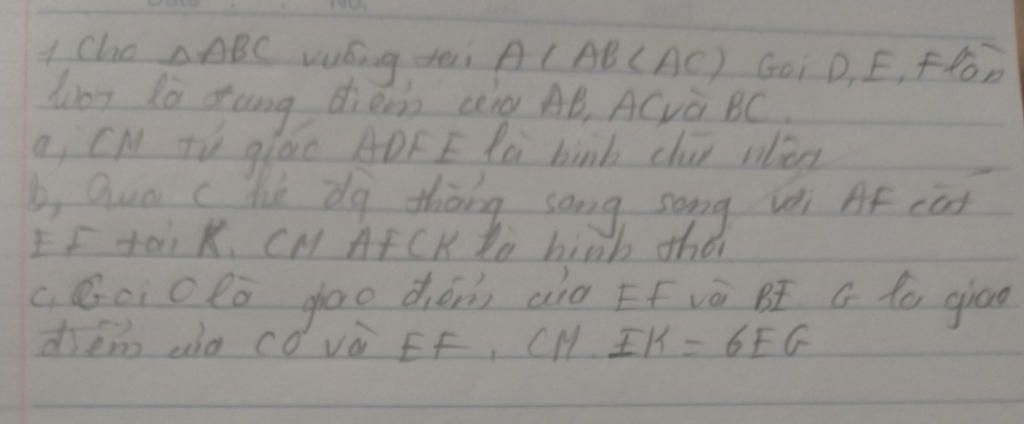 1 Cho △ABC vuông tại A (AB<AC) Gọi D, E, F lần
lượt là trung điểm của AB, AC và BC.
a, CM tứ giác ADFE là hình chữ nhật
b, Qua C kẻ đg thẳng song song với AF cắt
EF tại K. CM AFCK là hình thoi
c, Gọi O là giao điểm của EF và BE G là giao
điểm của CO và EF, CM. EK = 6EG